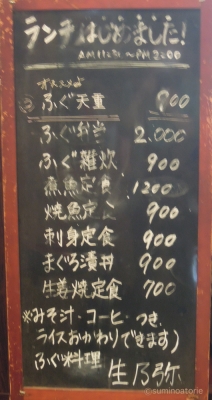 ランチはじめました!
AM11:30 ~PM2:00
オススメ
ふぐ天重 900
ふぐ弁当 2.000
ふぐ雑炊 900
煮魚定食 1200
焼魚定食 900
刺身定食 900
まぐろ漬丼 900
生姜焼定食 700
※みそ汁.コーヒーつき.
ライスおかわりできます)
ふぐ料理 生乃弥
©suminoatorie